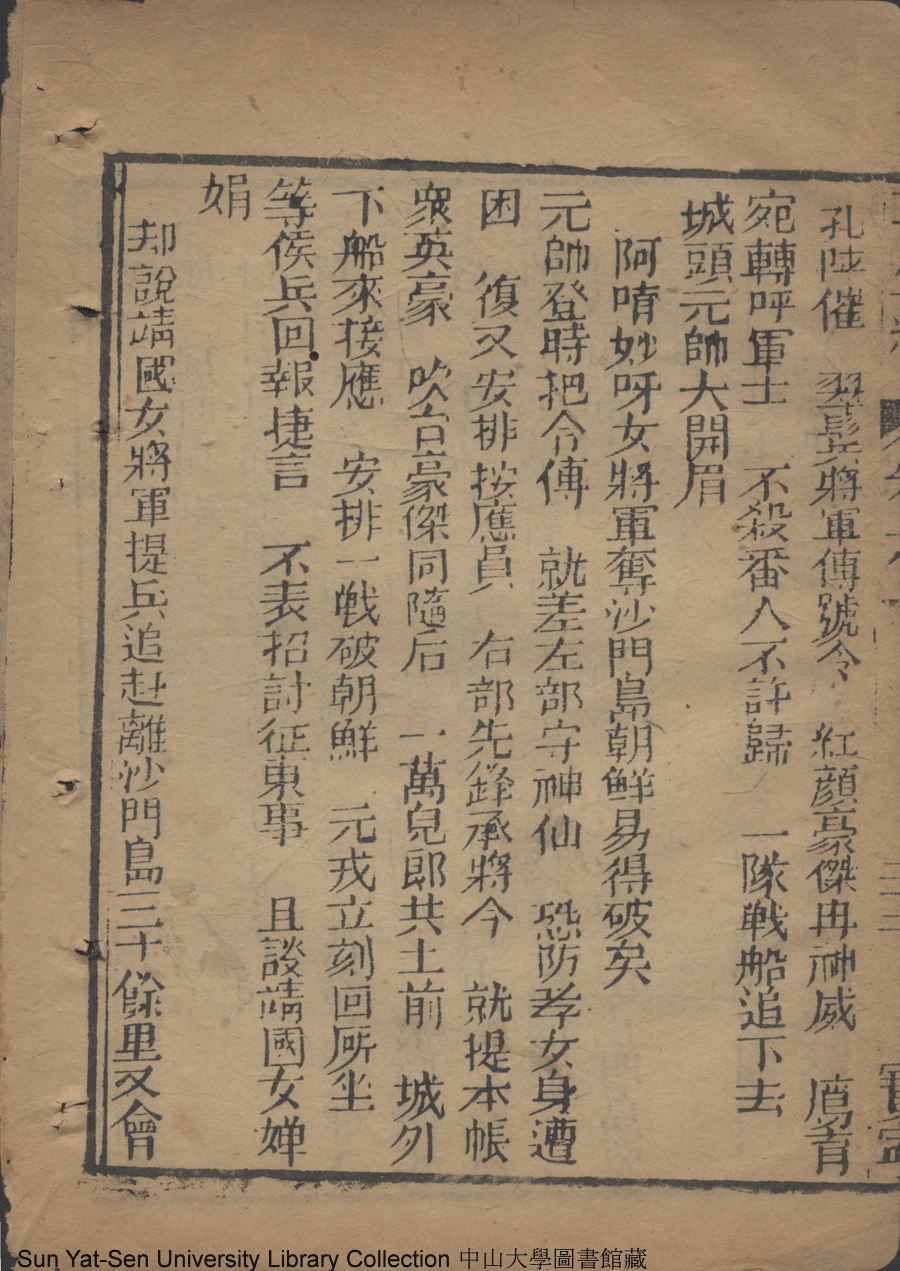 孔陞催　翠鬟將軍傳號令　紅顔豪傑冉神威　鴈音
宛轉呼軍士　不殺番人不許歸　一隊戦船追下去
城頭元帥大開眉
阿唷妙呀女將軍奪沙門島朝鮮易得破矣
元帥登時把令傳　就差左部守神仙　恐防孝女身遭
困　復又安排按應員　右部先鋒承將令　就提本帳
衆英豪　吹台豪傑同隨后　一萬兒郎共土前　城外
下船來接應　安排一戦破朝鮮　元戎立刻回厮坐
等侯兵回報捷言　不表招討征東事　且談靖國女嬋
娟
却說靖國女將軍提兵追赶離沙門島三十餘里又會
Sun Yat-Sen University Library Collection 中山大學圖書館藏